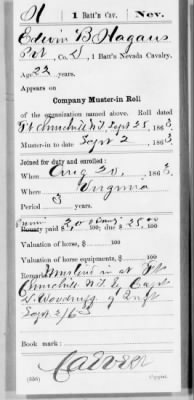 H | 1 Batt'n Cav. | Nev.
Edwin B Hagans
Pvt, Co. D, 1 Batt'n Nevada Cavalry.
Age 22 years.
Appears on
Company Muster-in Roll
of the organization named above. Roll dated
Ft Churchill N.T. Sept 25, 1863
Muster-in to date Sept 2, 1863
Joined for duty and enrolled:
When Aug 20, 1863
Where Virginia
Period 3 years.
Bounty paid $ 100; due $ 100
Valuation of horse, $ 100
Valuation of horse equipments, $ 100
Remarks: Mustered in at Ft
Churchill N.T. by Capt
D. Woodruff of Inft
Sept 2/63
Book mark:
(356) Copyist.